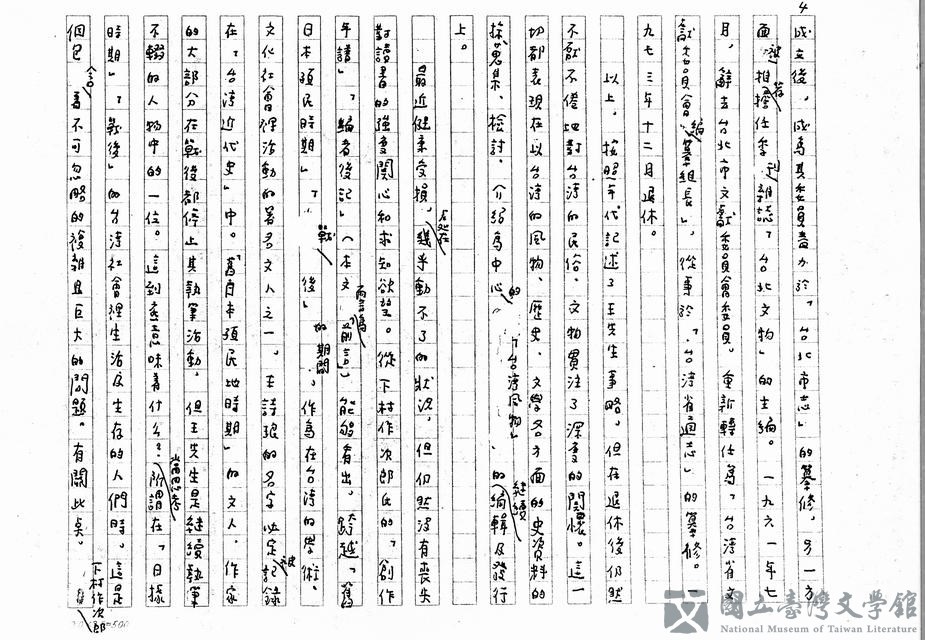 4
成立後，成為其委員盡力於「台北市志」的纂修，另一方
面被推薦擔任季刊雜誌「台北文物」的主編。一九六一年七
月，辭去台北市文獻委員會委員。重新轉任為「台湾省文
獻委員會編纂組長」，從事於「台湾省通志」的纂修。一
九七三年十二月退休。
以上，按照年代記述了王先生事略。但在退休後仍然
不厭不倦地對台湾的民俗、文物貫注了深度的關懷。這一
切都表現在以台湾的風物、歷史、文學各方面的史資料的
採蒐集、檢討、介紹為中心的「台湾風物」的繼續編輯及發行
上。
最近健康受損，處在幾乎動不了的狀況，但仍然沒有喪失
對讀書的強度關心和求知欲望。從下村作次郎氏的「創作
年譜」「編者後記」（本文「前言」）而言為能夠有出。跨越「舊
日本殖民時期」「戰後」的期間，作為在台湾的學術、
文化社會裡活動的署名文人之一。王詩琅的名字必定被記錄
在「台湾近代史」中。「舊日本殖民地時期」的文人、作家
的大部分在戰後都停止其執筆活動，但王先生是継續執筆
不輟的人物中的一位。這到底意味着什么？當思考所謂在「日據
時期」「戰後」的台湾社會裡生活及生存的人們時。這是
個包含着不可忽略的複雜且巨大的問題。有關此点。下村作次郎
國立臺灣文學館
National Museum of Taiwan Literature